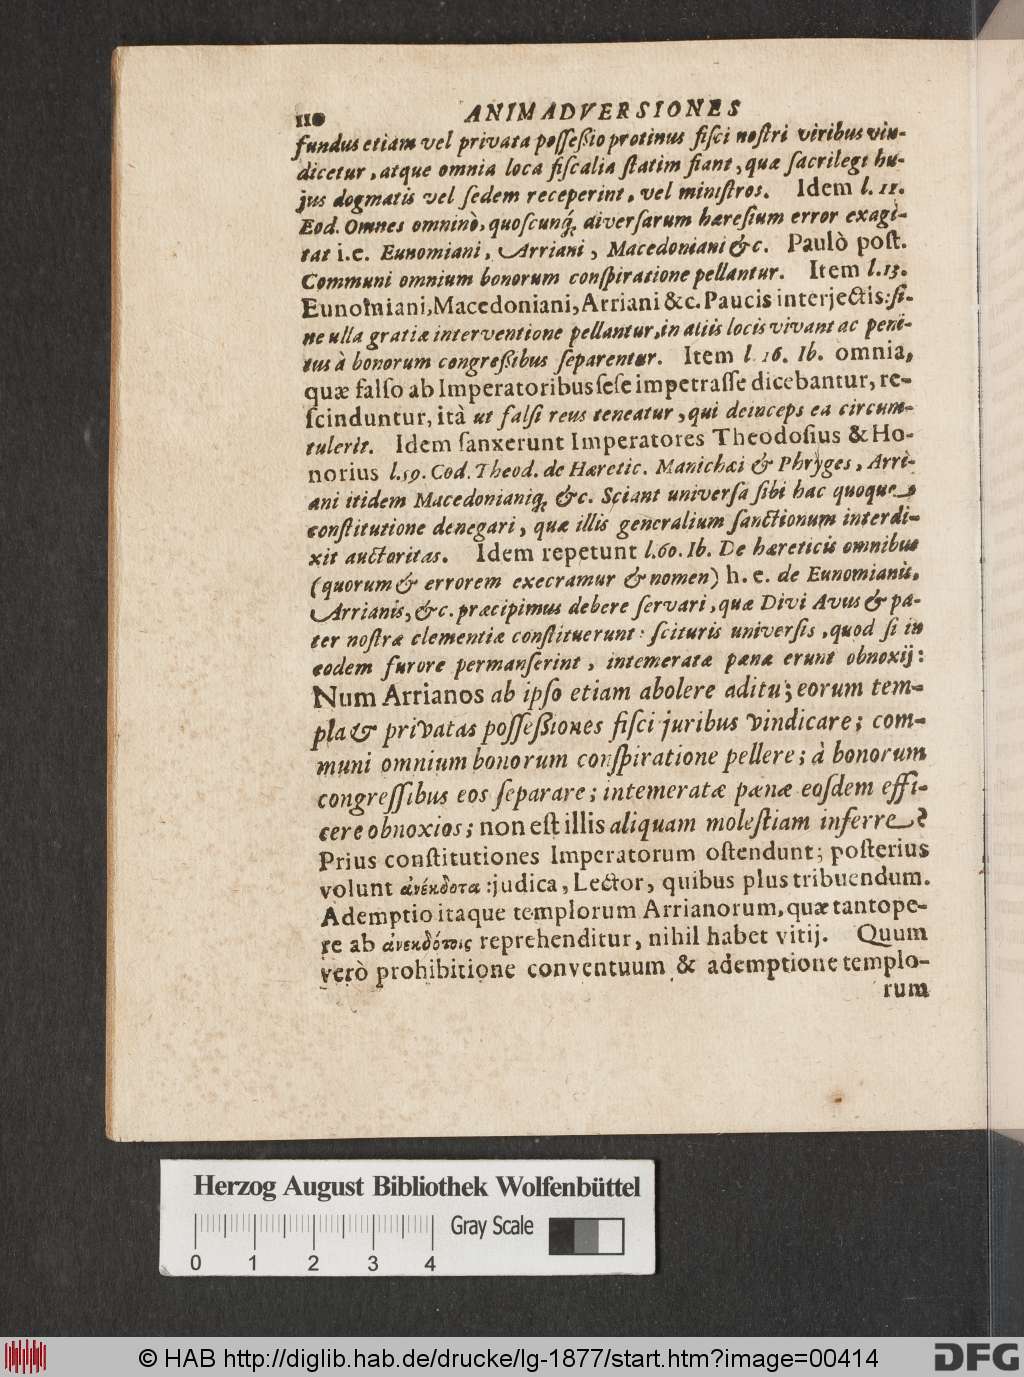 110 ANIMADVERSIONES
fundus etiam vel privata possessio protinus fisci nostri viribus vin-
dicetur, atque omnia loca fiscalia statim fiant, quæ sacrilegi hu-
jus dogmatis vel sedem receperint, vel ministros. Idem l. 11.
Eod. Omnes omninò, quoscunq; diversarum hæresium error exagi-
tat i.e. Eunomiani, Arriani, Macedoniani &c. Paulò post.
Communi omnium bonorum conspiratione pellantur. Item l.13.
Eunomiani, Macedoniani, Arriani &c. Paucis interjectis: si-
ne ulla gratiæ interventione pellantur, in aliis locis vivant ac peni-
tus à bonorum congressibus separentur. Item l. 16. Ib. omnia,
quæ falso ab Imperatoribus sese impetrasse dicebantur, re-
scinduntur, ità ut falsi reus teneatur, qui deinceps ea circum-
tulerit. Idem sanxerunt Imperatores Theodosius & Ho-
norius l.59. Cod. Theod. de Hæretic. Manichæi & Phryges, Arri-
ani itidem Macedonianiq; &c. Sciant universa sibi hac quoque
constitutione denegari, quæ illis generalium sanctionum interdi-
xit auctoritas. Idem repetunt l.60. Ib. De hæreticis omnibus
(quorum & errorem execramur & nomen) h. e. de Eunomianis,
Arrianis, &c. præcipimus debere servari, quæ Divi Avus & pa-
ter nostræ clementiæ constituerunt: scituris universis, quod si in
eodem furore permanserint, intemeratæ pænæ erunt obnoxij:
Num Arrianos ab ipso etiam abolere aditu; eorum tem-
pla & privatas possessiones fisci juribus vindicare; com-
muni omnium bonorum conspiratione pellere; à bonorum
congressibus eos separare; intemeratæ pænæ eosdem effi-
cere obnoxios; non est illis aliquam molestiam inferre?
Prius constitutiones Imperatorum ostendunt; posterius
volunt ἀνέκδοτα: judica, Lector, quibus plus tribuendum.
Ademptio itaque templorum Arrianorum, quæ tantope-
re ab ἀνεκδότοις reprehenditur, nihil habet vitij. Quum
verò prohibitione conventuum & ademptione templo-
rum
Herzog August Bibliothek Wolfenbüttel
Gray Scale
0 1 2 3 4
© HAB http://diglib.hab.de/drucke/lg-1877/start.htm?image=00414
DFG